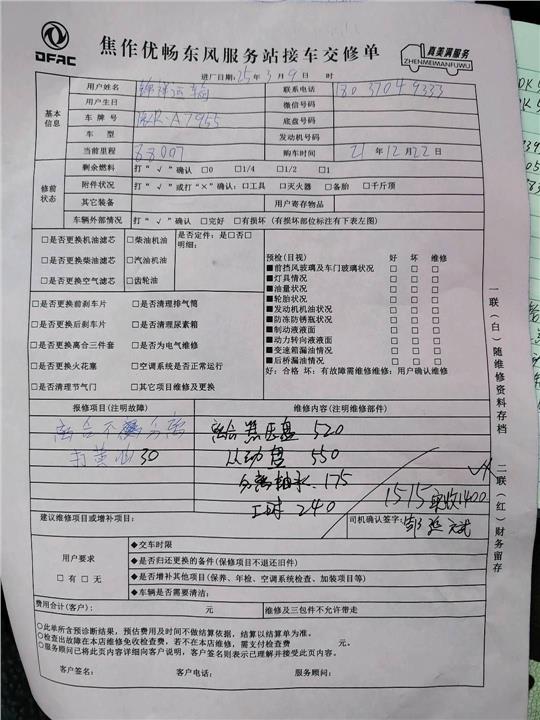 DFAC
焦作优畅东风服务站接车交修单
真美满服务
ZHENMEIMANFUWU
进厂日期: 25 年 3 月 9 日 时
基本信息
用户姓名 联系电话 18037049333
用户生日 微信号码
车牌号 A7955 底盘号码
车型 发动机号码
当前里程 68007 购车时间 21 年 12 月 22 日
修前状态
剩余燃料 打“√”确认 □0 □1/4 □1/2 □1
附件状况 打“√”或打“×”确认: □工具 □灭火器 □备胎 □千斤顶
其它装备 用户寄存物品
车辆外部情况 打“√”确认 □完好 □有损坏 (有损坏部位标注有下表左图)
□是否更换机油滤芯 □柴油机油 是否定件: 是□否□
□是否更换柴油滤芯 □汽油机油 明细:
□是否更换空气滤芯 □齿轮油
□是否更换前刹车片 □是否清理排气筒
□是否更换后刹车片 □是否清理尿素箱
□是否更换离合三件套 □是否为电气维修
□是否更换火花塞 □空调系统是否正常运行
□是否清理节气门 □其它项目维修及更换
预检(目视) 好 坏 维修
■前挡风玻璃及车门玻璃状况 □ □ □
■灯具情况 □ □ □
■油量状况 □ □ □
■轮胎状况 □ □ □
■发动机机油状况 □ □ □
■防冻防锈瓶状况 □ □ □
■制动液液面 □ □ □
■动力转向液液面 □ □ □
■变速箱漏油情况 □ □ □
■后桥漏油情况 □ □ □
好: 合格 坏: 有故障需维修维修: 用户确认维修
报修项目(注明故障) 维修内容(注明维修部件)
离合不 分离 离合 压盘 520
打黄油 30 从动盘 550
分离轴承 175
工时 240
1515 实收1400
建议维修项目或增补项目: 司机确认签字:
用户要求
□有 □无
◆交车时限
◆是否归还更换的备件(保修项目不退还旧件)
◆是否增补其他项目(保养、年检、空调系统检查、加装项目等)
◆车辆是否需要清洁:
费用合计(客户): 元 维修及三包件不允许带走
○此单所含预诊断结果, 预估费用及时间不做结算依据, 结算以结算单为准。
○检查出故障在本店维修免收检查费, 若不在本店维修, 需支付检查费 元。
○服务顾问已将此页内容详细向客户说明, 客户签名则表示已理解并接受此页内容。
客户签名: 客户电话: 服务顾问:
一联(白)随维修资料存档
二联(红)财务留存